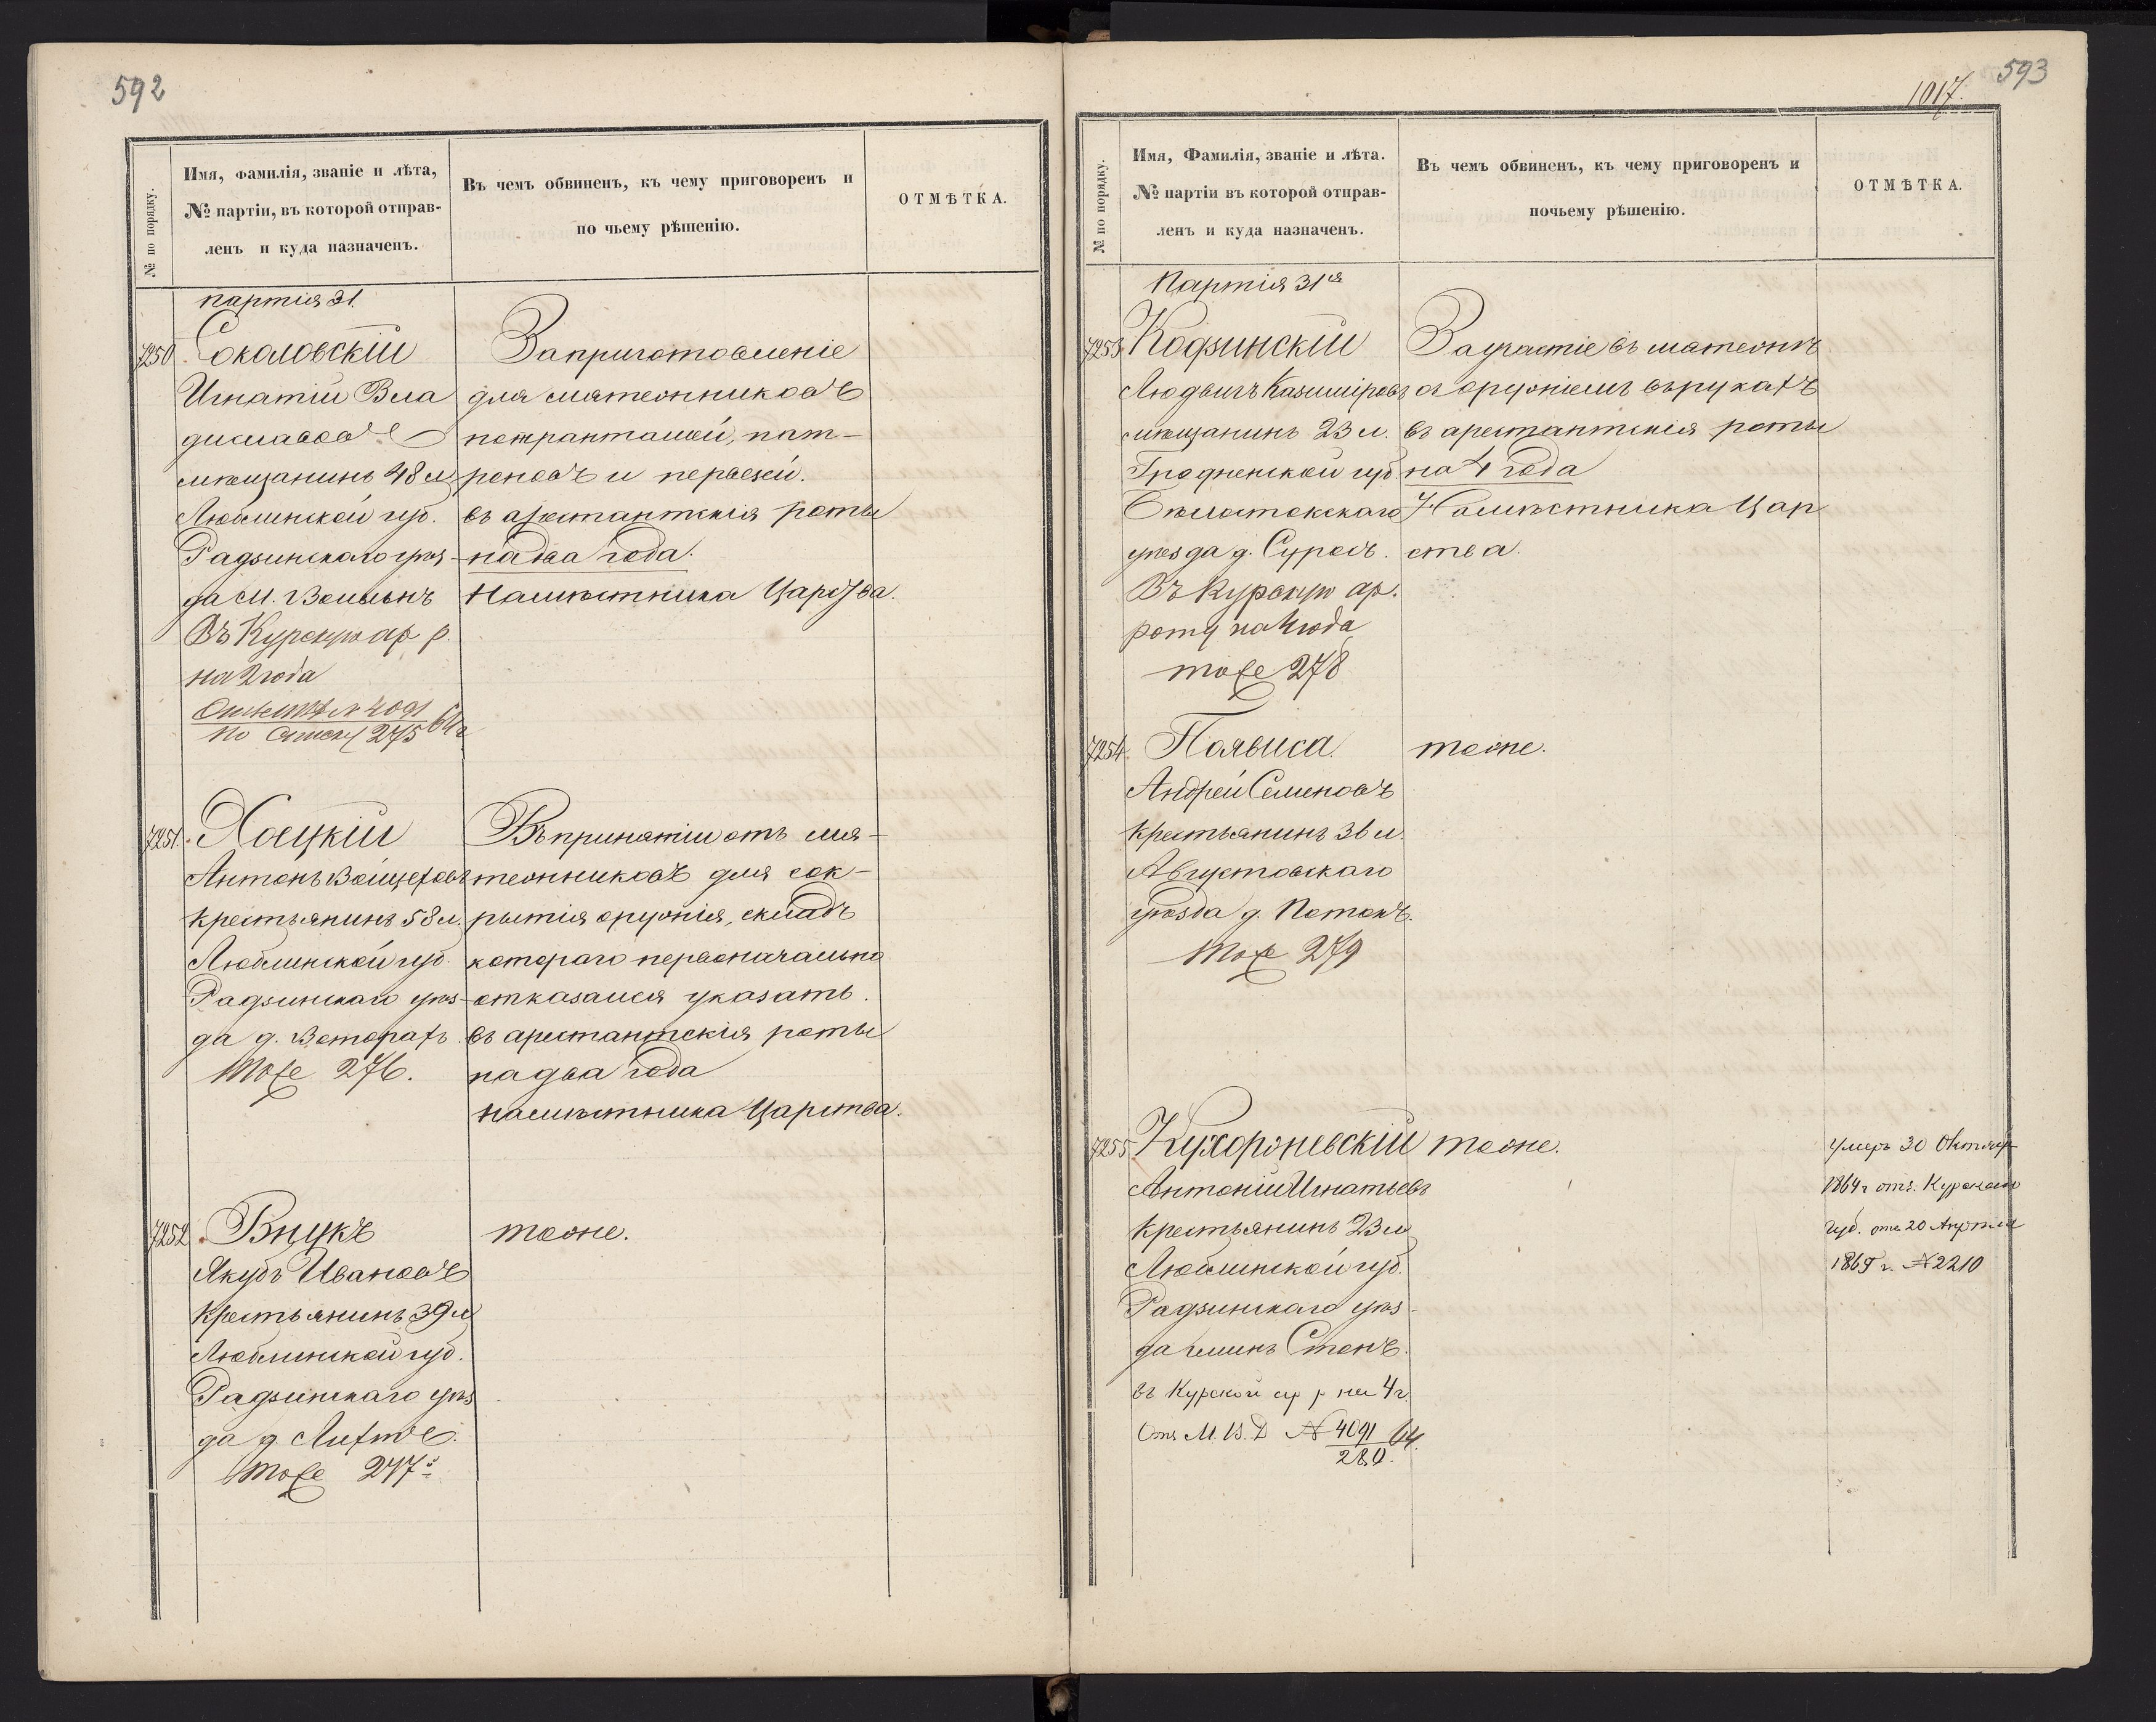 592
№ по порядку.
Имя, фамилія, званіе и лѣта,
№ партіи, въ которой отправ-
ленъ и куда назначенъ.
Въ чемъ обвиненъ, къ чему приговоренъ и
по чьему рѣшенію.
ОТМѢТКА.
партія 31.
7250 Соколовскій
Игнатій Вла
диславовъ
мѣщанинъ 48 л.
Люблинской губ.
Радзинскаго уѣз-
да м.
Въ Курскую ар. р.
на 2 года
№ 4091
По списку 275 64 г.
За приготовленіе
для мятежниковъ
потранташей, пат-
роновъ и
въ арестантскія роты
на два года.
Намѣстника Царства.
7251. Хоецкій
Антонъ Войцеховъ
крестьянинъ 58 л.
Люблинской губ.
Радзинскаго уѣз-
да д.
тоже 276.
Въ принятіи отъ мя-
тежниковъ для сок-
рытія оружія, складъ
котораго первоначально
отказался указать.
въ арестантскія роты
на два года
намѣстника Царства.
7252. Внукъ
Якубъ Ивановъ
крестьянинъ 39 л.
Люблинской губ.
Радзинскаго уѣз
да д.
тоже 277
тоже.
593
1017.
№ по порядку.
Имя, Фамилія, званіе и лѣта.
№ партіи въ которой отправ-
ленъ и куда назначенъ.
Въ чемъ обвиненъ, къ чему приговоренъ и
почьему рѣшенію.
ОТМѢТКА.
Партія 31я
7253 Кодзинскій
Людвигъ Казиміровъ
мѣщанинъ 23 л.
Гродненской губ.
Бѣлостокскаго
уѣзда д.
Въ Курскую ар.
роту на 4 года
тоже 278
За участіе въ мятежѣ
съ оружіемъ въ рукахъ
въ арестантскія роты
на 4 года
Намѣстника Цар
ства.
7254. Появиса.
Андрей Семеновъ
крестьянинъ 36 л.
Августовскаго
уѣзда д. Потокъ.
тоже 279
тоже.
7255 Кухорожевскій
Антоній Игнатьевъ
крестьянинъ 23 л
Люблинской губ.
Радзинскаго уѣз-
да гминъ Стокъ.
въ Курской ар р на 4 г.
Отъ М. В. Д № 4091 64.
280.
тоже.
Умеръ 30 Октября
1864 г отъ. Курскаго
Губ. отъ 20 Апрѣля
1865 г. № 2210